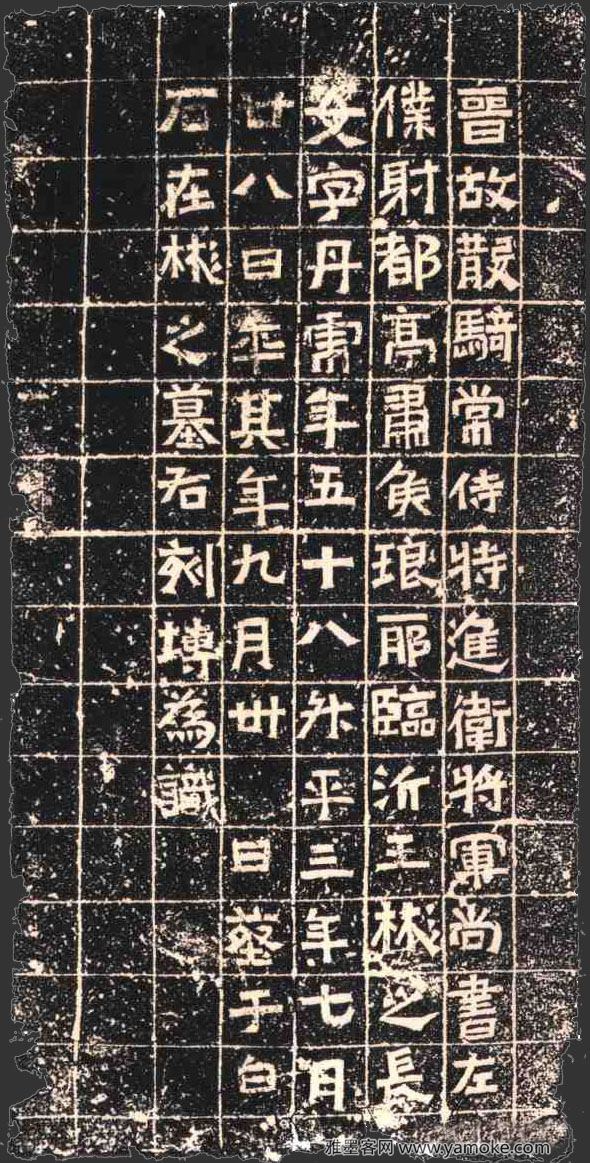 晉故散騎常侍特進衛將軍尚書左
僕射都亭肅侯琅耶臨沂王彬之長
女字丹虎年五十八升平三年七月
廿八日卒其年九月卅 日塟于白
石在彬之墓右刻塼為識
雅墨客网 www.yamoke.com